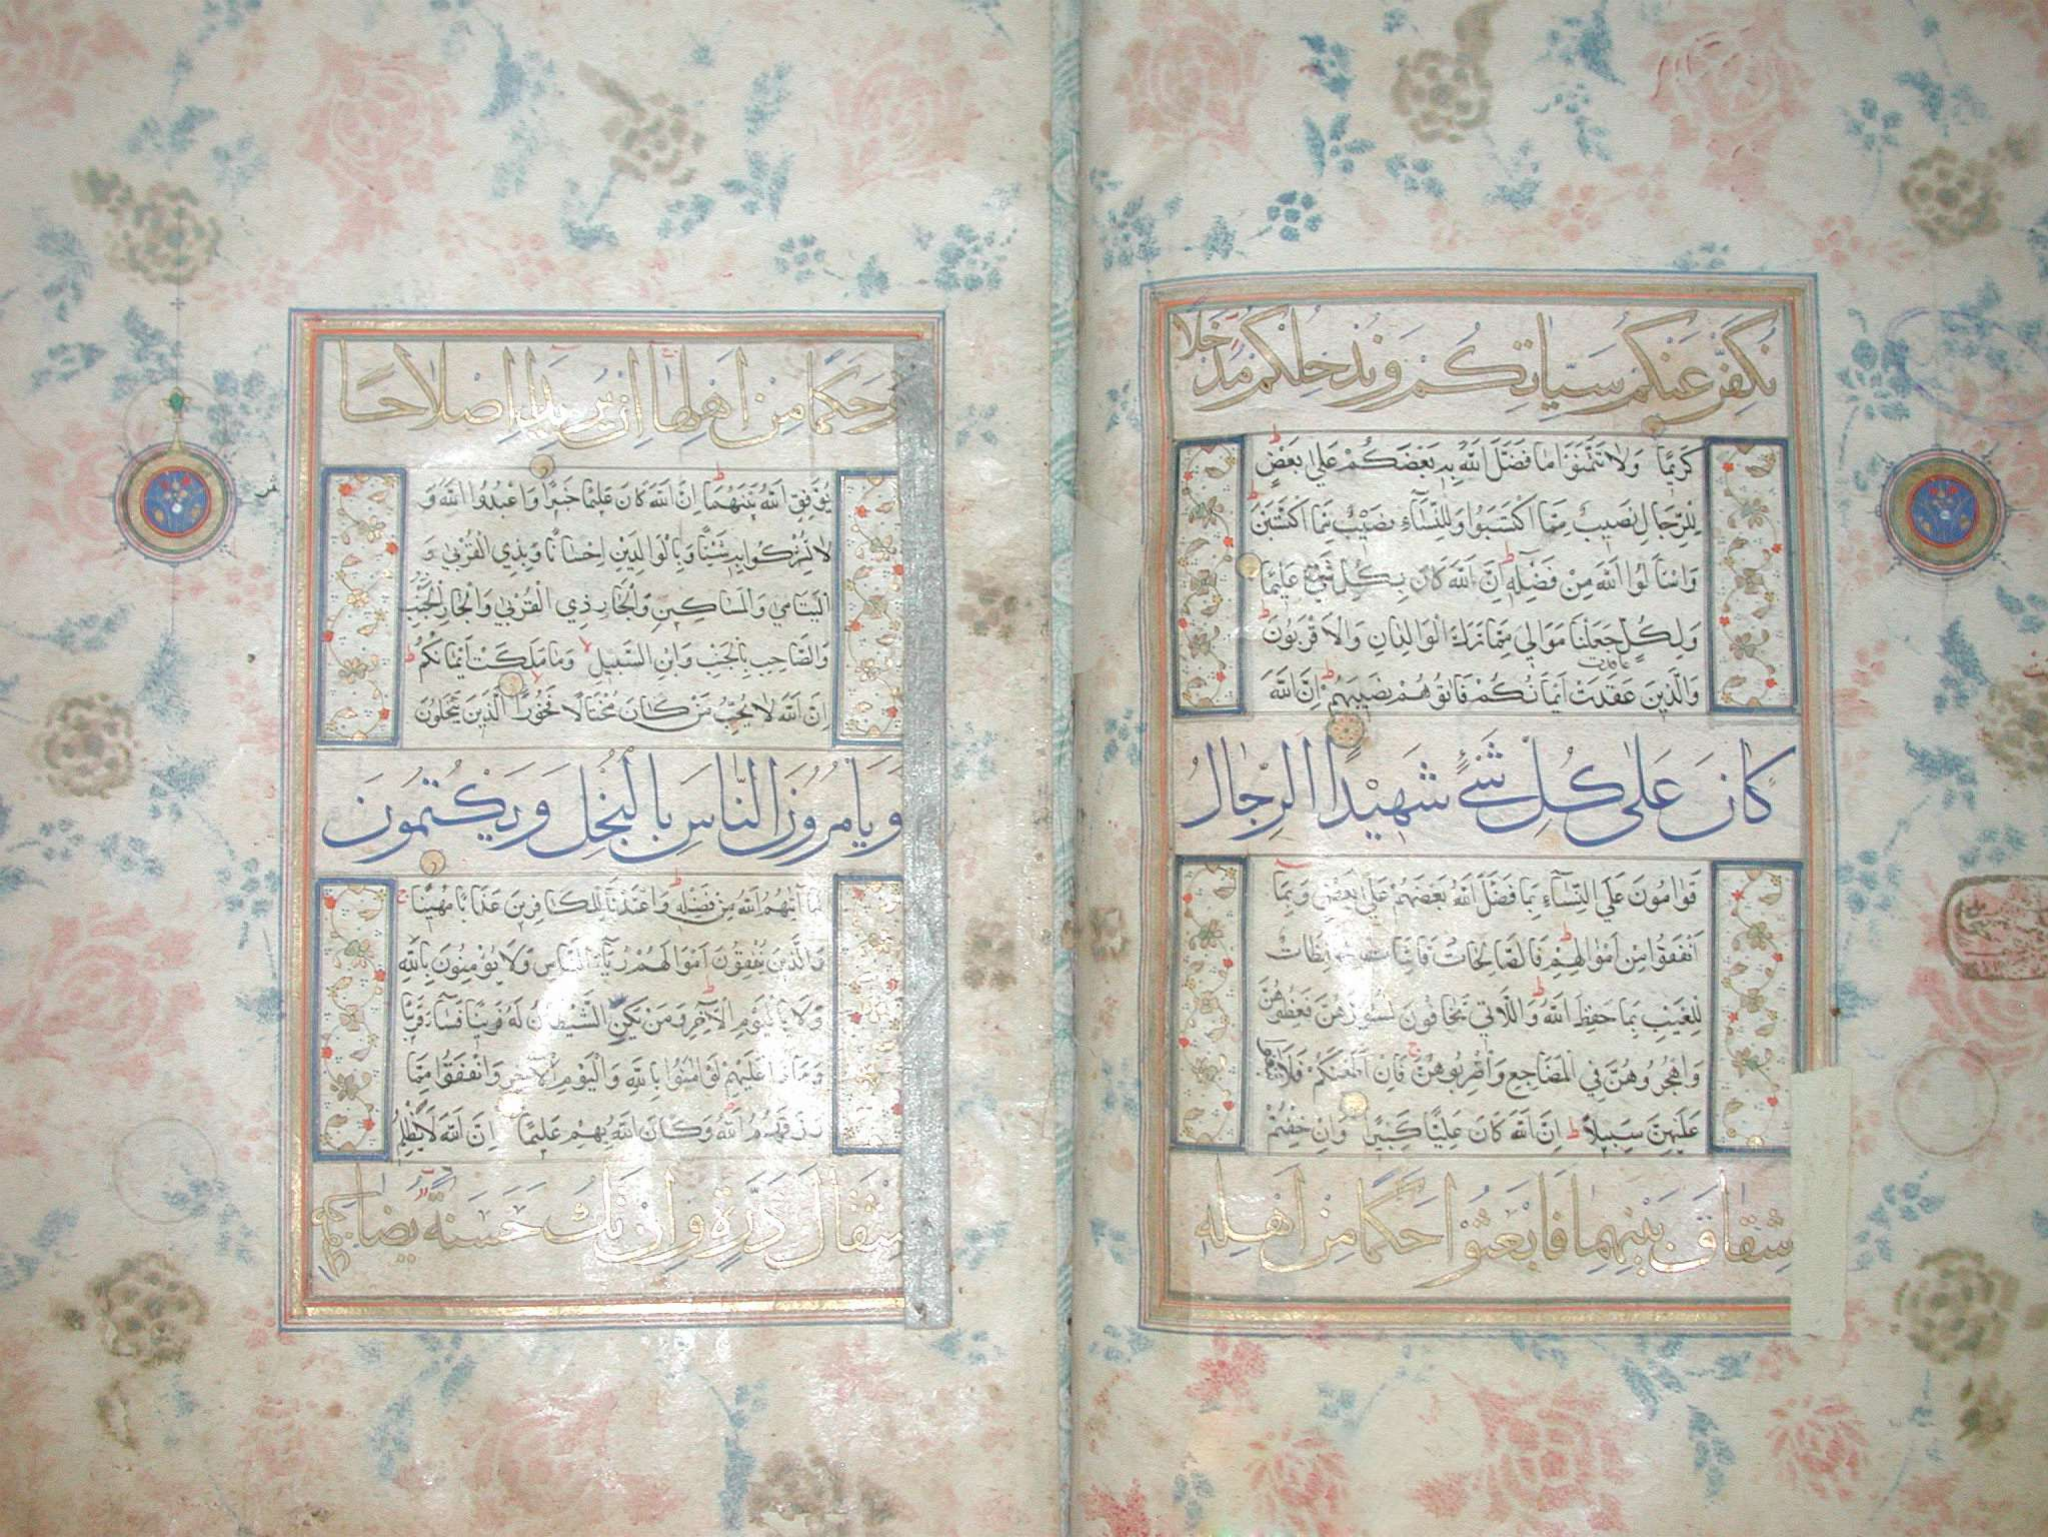 نُكَفِّرْ عَنْكُمْ سَيِّاٰتِكُمْ وَنُدْخِلْكُمْ مُدْخَلًا
كَرِيمًا وَلَا تَتَمَنَّوْا مَا فَضَّلَ اللّٰهُ بِهِ بَعْضَكُمْ عَلٰى بَعْضٍ
لِلرِّجَالِ نَصِيبٌ مِمَّا اكْتَسَبُوا وَلِلنِّسَآءِ نَصِيبٌ مِمَّا اكْتَسَبْنَ
وَاسْئَلُوا اللّٰهَ مِنْ فَضْلِهِ اِنَّ اللّٰهَ كَانَ بِكُلِّ شَيْءٍ عَلِيمًا
وَلِكُلٍّ جَعَلْنَا مَوَالِيَ مِمَّا تَرَكَ الْوَالِدَانِ وَالْاَقْرَبُونَ
وَالَّذِينَ عَقَدَتْ اَيْمَانُكُمْ فَاٰتُوهُمْ نَصِيبَهُمْ اِنَّ اللّٰهَ
كَانَ عَلٰى كُلِّ شَيْءٍ شَهِيدًا اَلرِّجَالُ
قَوَّامُونَ عَلَى النِّسَآءِ بِمَا فَضَّلَ اللّٰهُ بَعْضَهُمْ عَلٰى بَعْضٍ وَبِمَا
اَنْفَقُوا مِنْ اَمْوَالِهِمْ فَالصَّالِحَاتُ قَانِتَاتٌ حَافِظَاتٌ
لِلْغَيْبِ بِمَا حَفِظَ اللّٰهُ وَاللَّاتِي تَخَافُونَ نُشُوزَهُنَّ فَعِظُوهُنَّ
وَاهْجُرُوهُنَّ فِي الْمَضَاجِعِ وَاضْرِبُوهُنَّ فَاِنْ اَطَعْنَكُمْ فَلَا تَبْغُوا
عَلَيْهِنَّ سَبِيلًا اِنَّ اللّٰهَ كَانَ عَلِيًّا كَبِيرًا وَاِنْ خِفْتُمْ
شِقَاقَ بَيْنِهِمَا فَابْعَثُوا حَكَمًا مِنْ اَهْلِهِ
وَحَكَمًا مِنْ اَهْلِهَا اِنْ يُرِيدَا اِصْلَاحًا
يُوَفِّقِ اللّٰهُ بَيْنَهُمَا اِنَّ اللّٰهَ كَانَ عَلِيمًا خَبِيرًا وَاعْبُدُوا اللّٰهَ وَ
لَا تُشْرِكُوا بِهِ شَيْئًا وَبِالْوَالِدَيْنِ اِحْسَانًا وَبِذِي الْقُرْبٰى وَ
الْيَتَامٰى وَالْمَسَاكِينِ وَالْجَارِ ذِي الْقُرْبٰى وَالْجَارِ الْجُنُبِ
وَالصَّاحِبِ بِالْجَنْبِ وَابْنِ السَّبِيلِ وَمَا مَلَكَتْ اَيْمَانُكُمْ
اِنَّ اللّٰهَ لَا يُحِبُّ مَنْ كَانَ مُخْتَالًا فَخُورًا اَلَّذِينَ يَبْخَلُونَ
وَيَأْمُرُونَ النَّاسَ بِالْبُخْلِ وَيَكْتُمُونَ
مَا اٰتٰيهُمُ اللّٰهُ مِنْ فَضْلِهِ وَاَعْتَدْنَا لِلْكَافِرِينَ عَذَابًا مُهِينًا
وَالَّذِينَ يُنْفِقُونَ اَمْوَالَهُمْ رِئَآءَ النَّاسِ وَلَا يُؤْمِنُونَ بِاللّٰهِ
وَلَا بِالْيَوْمِ الْاٰخِرِ وَمَنْ يَكُنِ الشَّيْطَانُ لَهُ قَرِينًا فَسَآءَ قَرِينًا
وَمَاذَا عَلَيْهِمْ لَوْ اٰمَنُوا بِاللّٰهِ وَالْيَوْمِ الْاٰخِرِ وَاَنْفَقُوا مِمَّا
رَزَقَهُمُ اللّٰهُ وَكَانَ اللّٰهُ بِهِمْ عَلِيمًا اِنَّ اللّٰهَ لَا يَظْلِمُ
مِثْقَالَ ذَرَّةٍ وَاِنْ تَكُ حَسَنَةً يُضَاعِفْهَا